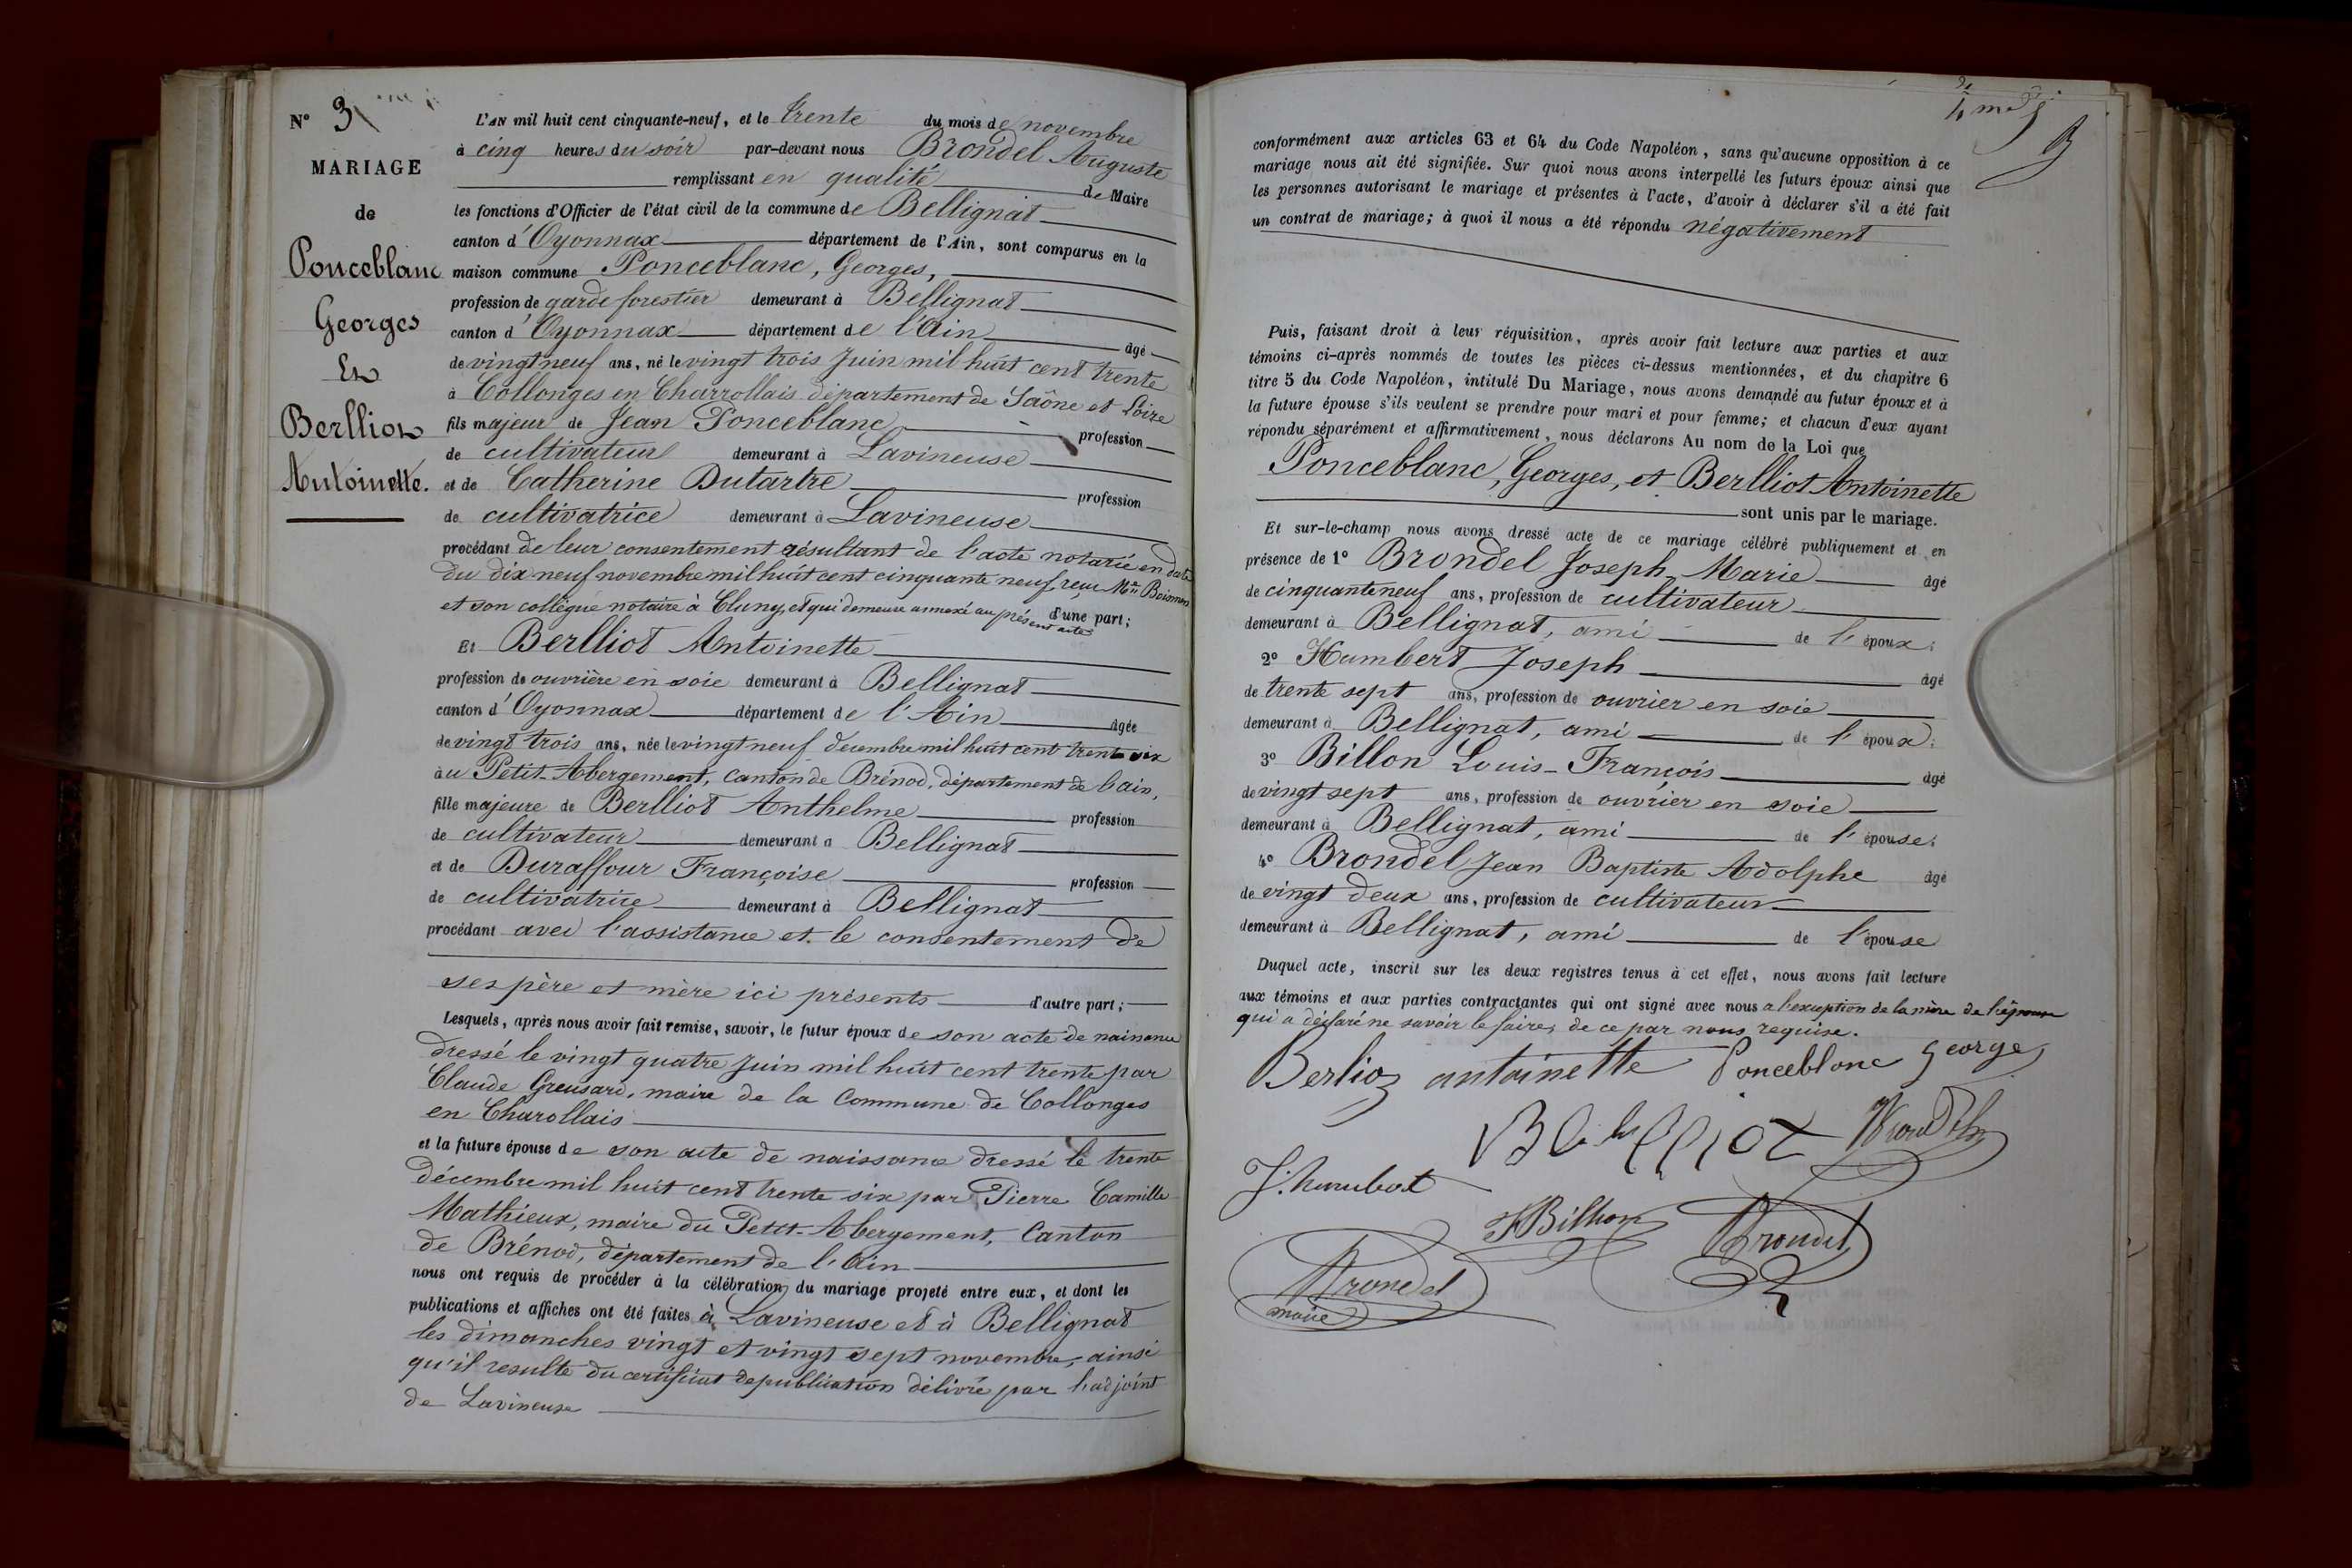 N° 3
MARIAGE
de
Ponceblanc
Georges
Et
Berlliot
Antoinette.
L'AN mil huit cent cinquante-neuf, et le trente du mois de novembre
à cinq heures du soir par-devant nous Brondel Auguste
remplissant en qualité de Maire
les fonctions d'Officier de l'état civil de la commune de Bellignat
canton d'Oyonnax département de l'Ain, sont comparus en la
maison commune Ponceblanc, Georges,
profession de garde forestier demeurant à Bellignat
canton d'Oyonnax département de l'Ain âgé
de vingt neuf ans, né le vingt trois Juin mil huit cent trente
à Collonges en Charrollais département de Saône et Loire
fils majeur de Jean Ponceblanc profession
de cultivateur demeurant à Lavineuse
et de Catherine Dutartre profession
de cultivatrice demeurant à Lavineuse
procédant de leur consentement résultant de l'acte notarié en date
du dix neuf novembre mil huit cent cinquante neuf, reçu Me
et son collègue notaire à Cluny, et qui demeure annexé au présent acte d'une part;
Et Berlliot Antoinette
profession de ouvrière en soie demeurant à Bellignat
canton d'Oyonnax département de l'Ain âgée
de vingt trois ans, née le vingt neuf decembre mil huit cent trente six
au Petit-Abergement, canton de Brénod, département de l'ain,
fille majeure de Berlliot Anthelme profession
de cultivateur demeurant à Bellignat
et de Duraffour Françoise profession
de cultivatrice demeurant à Bellignat
procédant avec l'assistance et le consentement de
ses père et mère ici présents d'autre part;
Lesquels, après nous avoir fait remise, savoir, le futur époux de son acte de naissance
dressé le vingt quatre Juin mil huit cent trente par
Claude Greusard, maire de la Commune de Collonges
en Charollais
et la future épouse de son acte de naissance dressé le trente
décembre mil huit cent trente six par Pierre Camille
Mathieux, maire du Petit-Abergement, Canton
de Brénod, département de l'Ain
nous ont requis de procéder à la célébration du mariage projeté entre eux, et dont les
publications et affiches ont été faites à Lavineuse et à Bellignat
les dimanches vingt et vingt sept novembre, ainsi
qu'il resulte du certificat de publication délivré par l'adjoint
de Lavineuse
conformément aux articles 63 et 64 du Code Napoléon, sans qu'aucune opposition à ce
mariage nous ait été signifiée. Sur quoi nous avons interpellé les futurs époux ainsi que
les personnes autorisant le mariage et présentes à l'acte, d'avoir à déclarer s'il a été fait
un contrat de mariage; à quoi il nous a été répondu négativement
Puis, faisant droit à leur réquisition, après avoir fait lecture aux parties et aux
témoins ci-après nommés de toutes les pièces ci-dessus mentionnées, et du chapitre 6
titre 5 du Code Napoléon, intitulé Du Mariage, nous avons demandé au futur époux et à
la future épouse s'ils veulent se prendre pour mari et pour femme; et chacun d'eux ayant
répondu séparément et affirmativement, nous déclarons Au nom de la Loi que
Ponceblanc, Georges, et Berlliot Antoinette
sont unis par le mariage.
Et sur-le-champ nous avons dressé acte de ce mariage célébré publiquement et en
présence de 1° Brondel Joseph Marie âgé
de cinquante neuf ans, profession de cultivateur
demeurant à Bellignat, ami de l'époux;
2° Humbert Joseph âgé
de trente sept ans, profession de ouvrier en soie
demeurant à Bellignat, ami de l'époux;
3° Billon Louis-François âgé
de vingt sept ans, profession de ouvrier en soie
demeurant à Bellignat, ami de l'épouse;
4° Brondel Jean Baptiste Adolphe âgé
de vingt deux ans, profession de cultivateur
demeurant à Bellignat, ami de l'épouse
Duquel acte, inscrit sur les deux registres tenus à cet effet, nous avons fait lecture
aux témoins et aux parties contractantes qui ont signé avec nous a l'exception de la mère de l'épouse
qui a déclaré ne savoir le faire, de ce par nous requise.
Berlioz antoinette Ponceblanc george
J. humbert
Billion Brondel
Brondel
maire